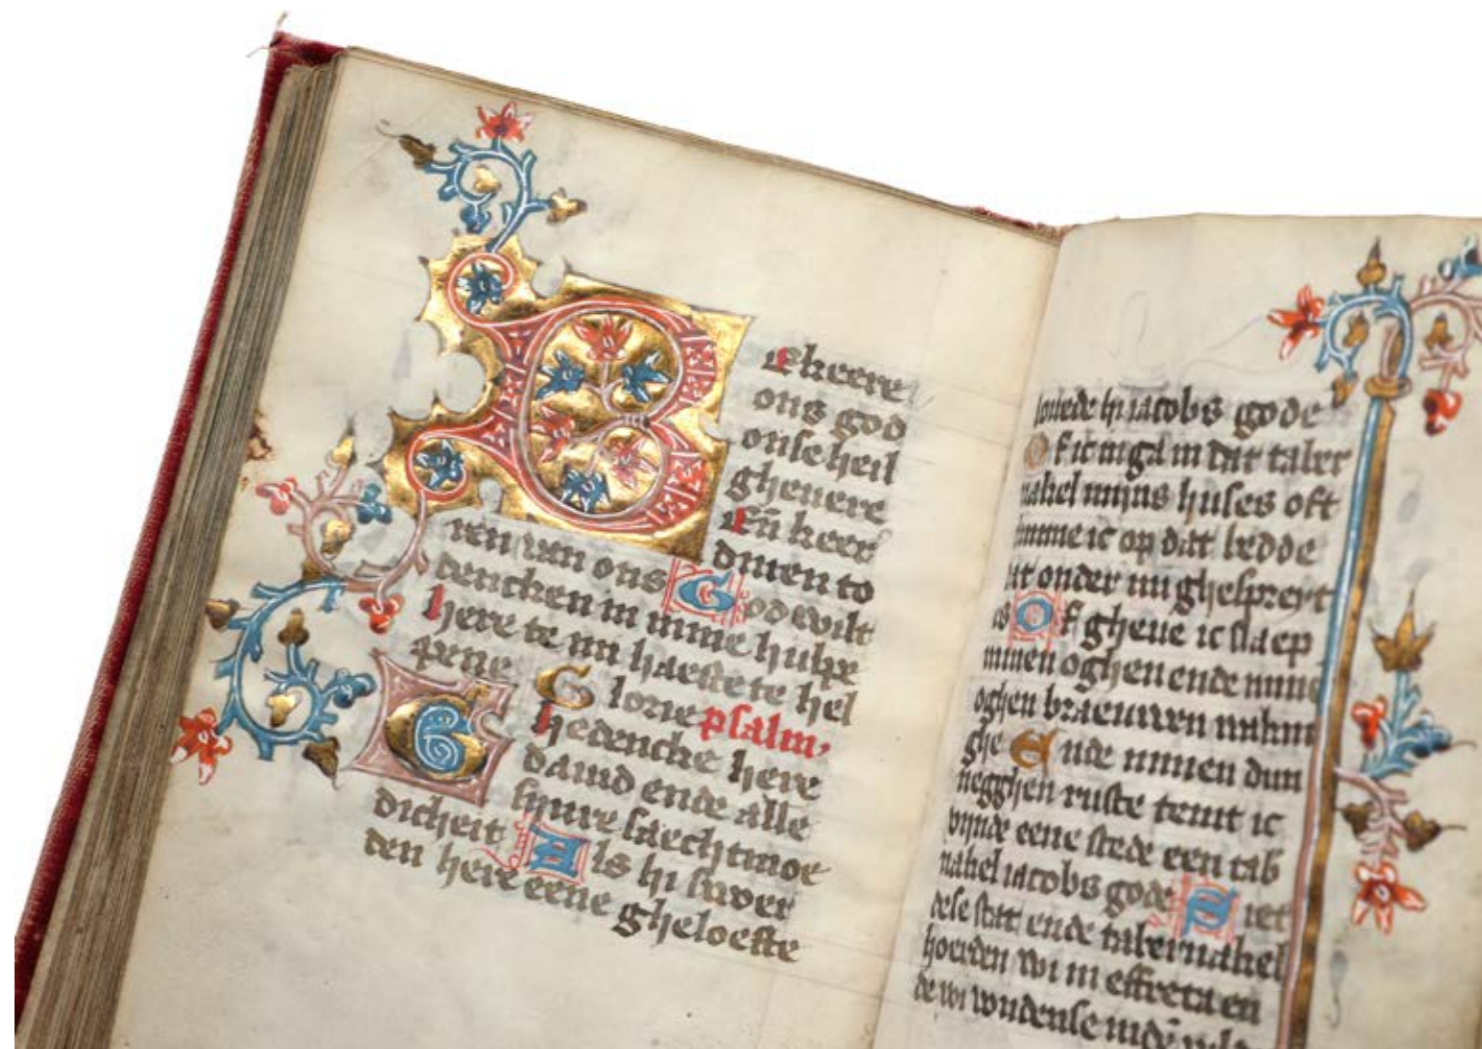 Bekeere
ons god
onse heil
gheuere
En̄ keer
dinen to
ren van ons God wilt
dencken in mine hulpe
here te mi haeste te hel
pene Glorie psalm
Gedencke here
dauid ende alle
sijnre saechtmoe
dicheit Als hi swoer
den here eene gheloefte
louede hi iacobs gode
Of ic niga in dat taber
nakel mijns huses oft
climme ic op dat bedde
dat onder mi ghespreyt
is Of gheue ic slaep
minen oghen ende mine
oghen braeuwen
ghe Ende minen dun
negghen ruste temt ic
vijnde eene stede een tab
nakel iacobs gode Siet
dese stat ende tabernakel
hoerden wi in effreta en
de wi vondense